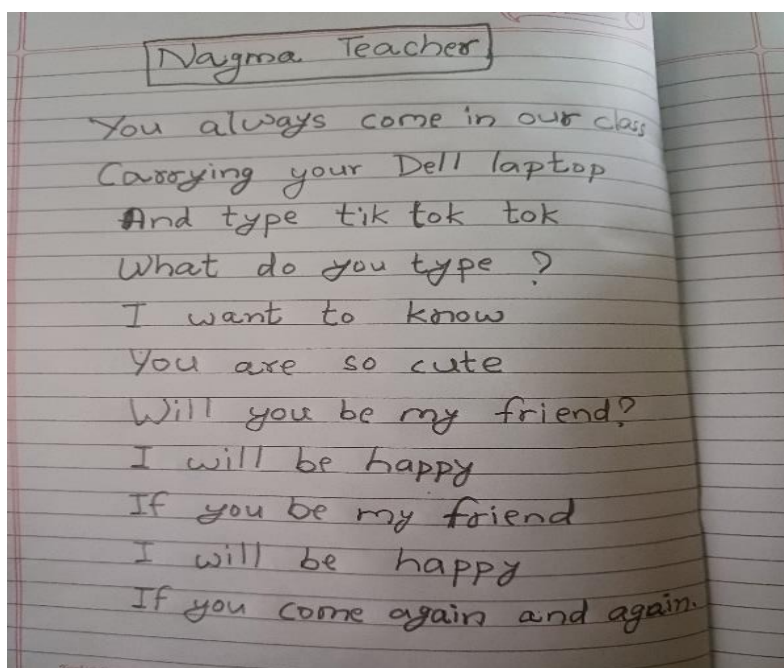 Nagma Teacher
You always come in our class
Carrying your Dell laptop
And type tik tok tok
What do you type ?
I want to know
You are so cute
Will you be my friend?
I will be happy
If you be my friend
I will be happy
If you come again and again.